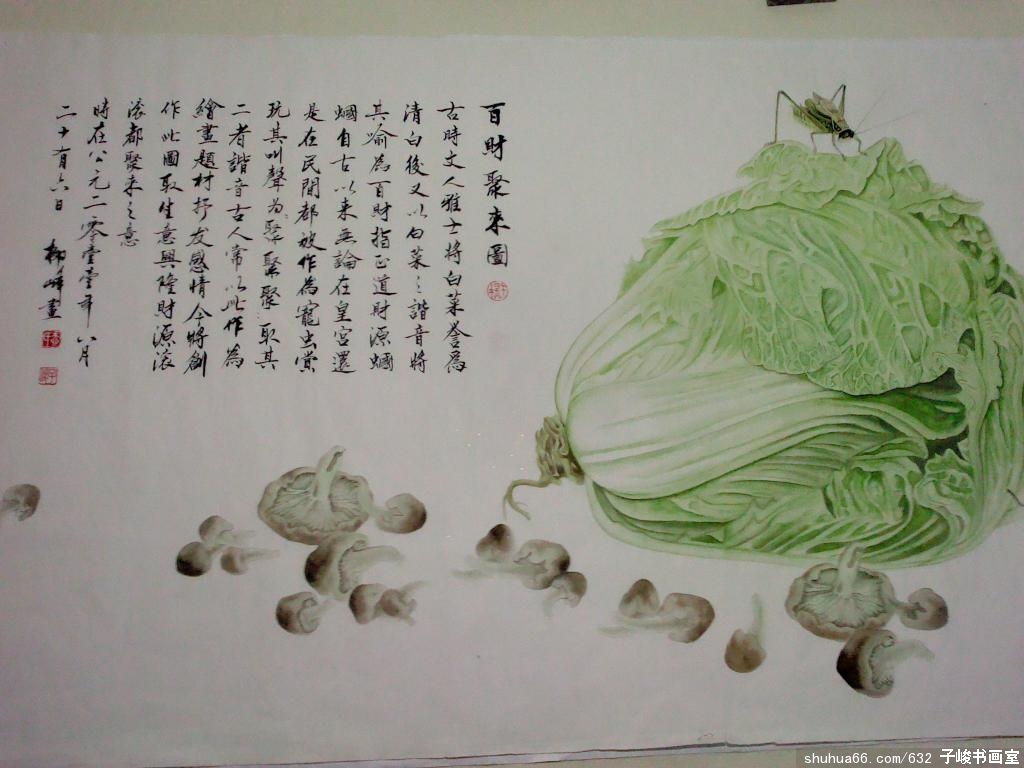 百財聚來圖
古時文人雅士將白菜譽爲
清白後又以白菜之諧音將
其喻為百財指正道財源蟈
蟈自古以来無論在皇宮還
是在民間都被作為寵虫常
玩其叫聲为聚聚聚取其
二者諧音古人常以此作為
繪畫題材抒发感情今將創
作此圖取生意興隆財源滾
滾都聚来之意
時在公元二零壹壹年八月
二十有六日
畫
shuhua66.com/632 子峻书画室